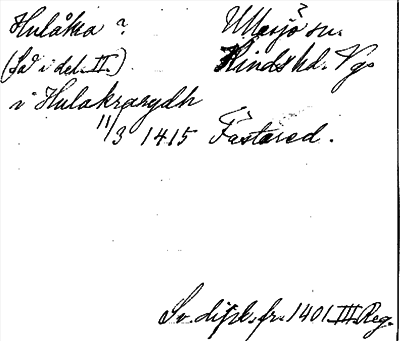 Hulåkra ? Ullasjö sn.
(Så i del. II.) Kinds hd. Vg.
i Hulakrarydh
11/3 1415 Fastared.
Sv. dipl. fr. 1401 III Reg.